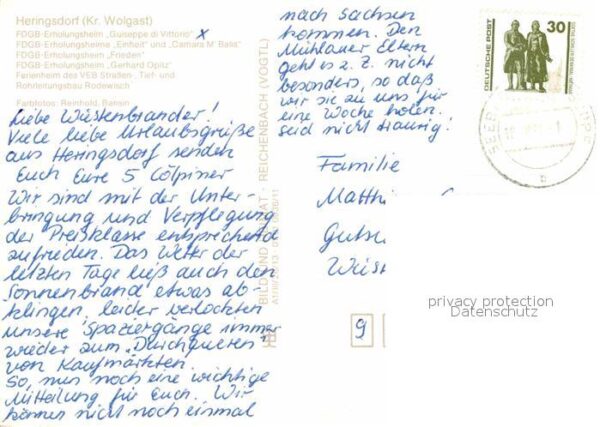 Heringsdorf (Kr. Wolgast)
FDGB-Erholungsheim „Guiseppe di Vittorio" x
FDGB-Erholungsheime „Einheit" und „Camara M' Balia"
FDGB-Erholungsheim „Frieden"
FDGB-Erholungsheim „Gerhard Opitz"
Ferienheim des VEB Straßen-, Tief- und
Rohrleitungsbau Rodewisch
Farbfotos: Reinhold, Bansin
Liebe Wüstenbrander!
Viele liebe Urlaubsgrüße
aus Heringsdorf senden
Euch Eure 5 Cölpiner
Wir sind mit der Unter-
bringung und Verpflegung
der Preißklasse entsprechend
zufrieden. Das Wetter der
letzten Tage ließ auch den
Sonnenbrand etwas ab-
klingen, leider verlockten
unsere Spaziergänge immer
wieder zum „Durchqueren"
von Kaufmärkten.
So, nun noch eine wichtige
Mitteilung für Euch. Wir
können nicht noch einmal
nach Sachsen
kommen. Den
Mühlauer Eltern
geht es z. Z. nicht
besonders, so daß
wir sie zu uns für
eine Woche holen.
Seid nicht traurig!
BILD UND HEIMAT · REICHENBACH (VOGTL)
DEUTSCHE POST
30
Familie
Matth
Guts
Wüst
9
privacy protection
Datenschutz